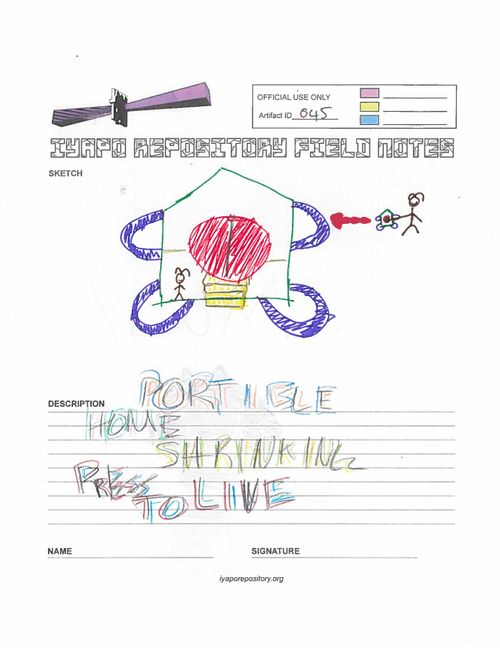 OFFICIAL USE ONLY
Artifact ID 045
IYAPO REPOSITORY FIELD NOTES
SKETCH
DESCRIPTION
PORTIBLE
HOME
SHRINKING
PRESS
TO LIVE
NAME
SIGNATURE
iyaporepository.org